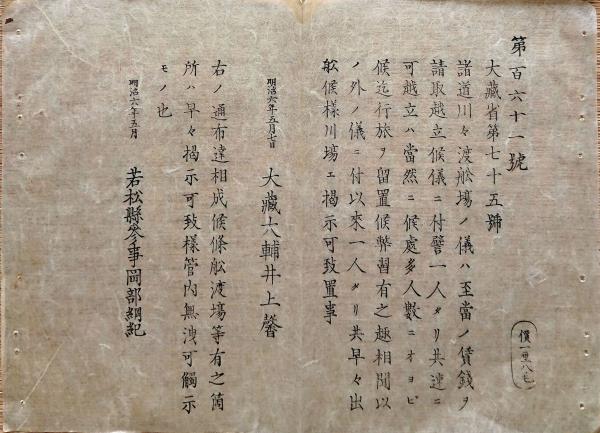 第百六十一號
大藏省第七十五號
諸道川々渡舩場ノ儀ハ至當ノ賃錢ヲ
請取越立候儀ニ付譬一人タリ共速ニ
可越立ハ當然ニ候處多人數ニオヨビ
候迄行旅ヲ留置候弊習有之趣相聞以
ノ外ノ儀ニ付以來一人タリ共早々出
舩候樣川場ェ揭示可致置事
明治六年五月七日
大藏大輔井上馨
右ノ通布達相成候條舩渡場等有之箇
所ハ早々揭示可致樣管內無洩可觸示
モノ也
明治六年五月
若松縣參事岡部綱紀
價一厘八毛